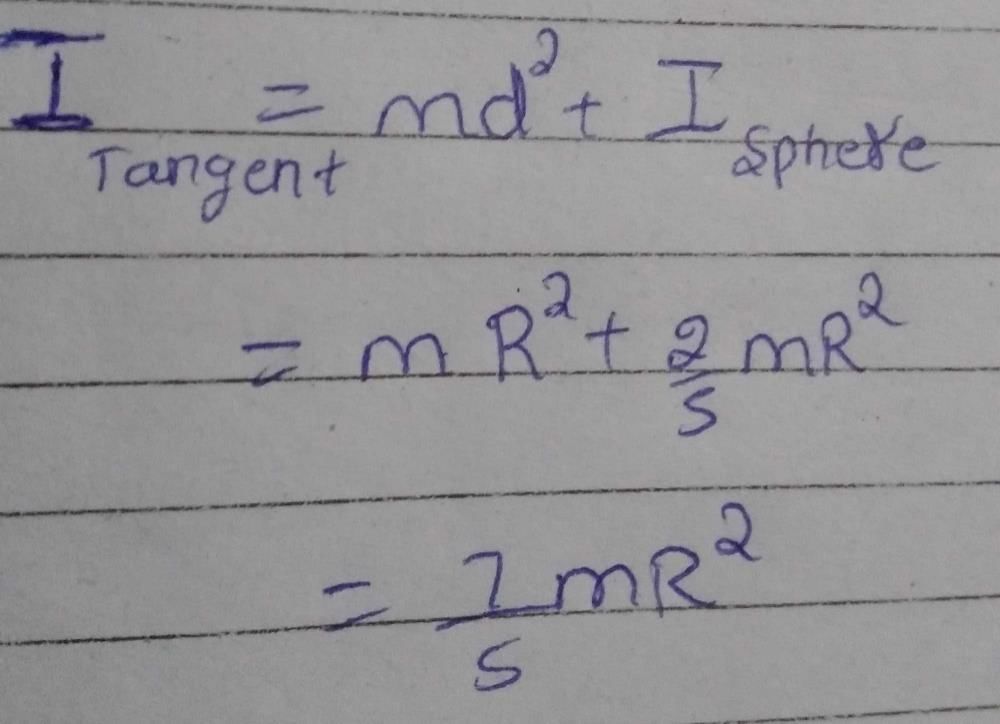 I Tangent = md² + I Sphere
= mR² + 2/5 mR²
= 7/5 mR²